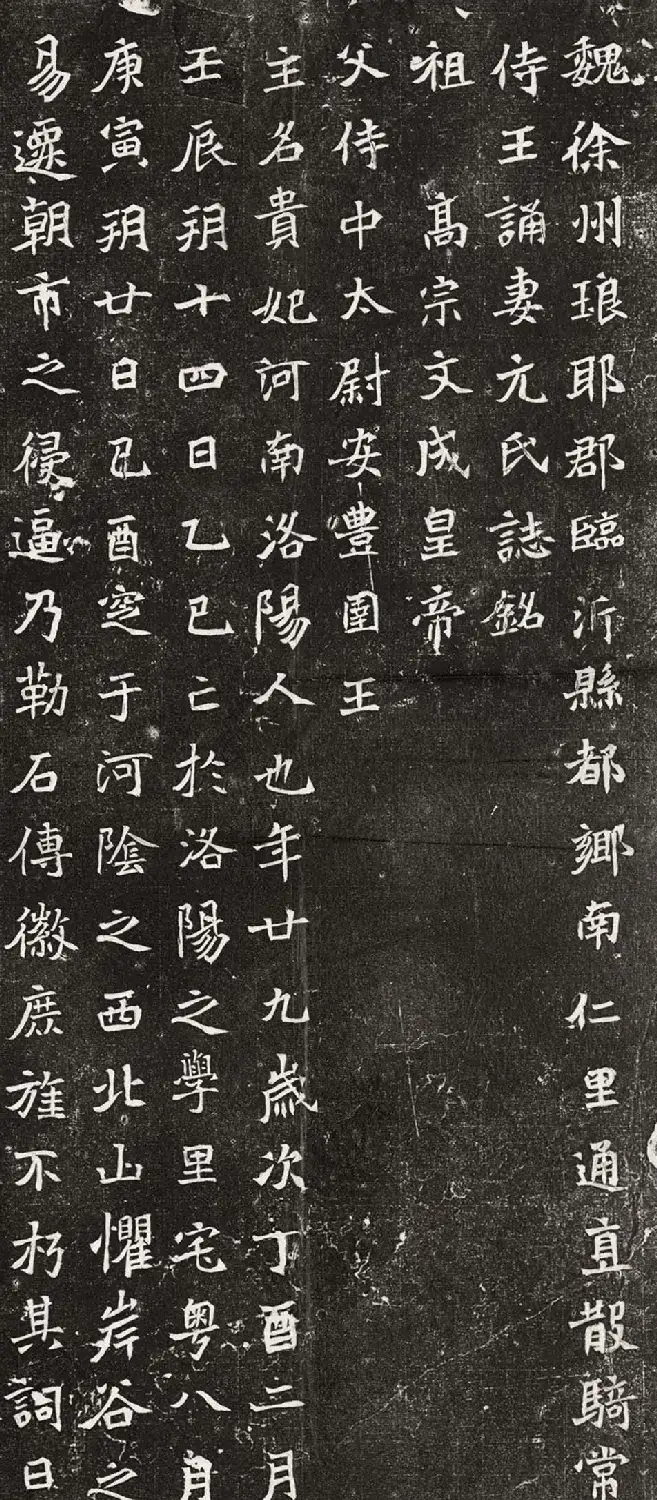 魏徐州琅耶郡臨沂縣都鄉南仁里通直散騎常
侍王誦妻元氏誌銘
祖高宗文成皇帝
父侍中太尉安豐圉王
主名貴妃河南洛陽人也年廿九歲次丁酉二月
壬辰朔十四日乙巳亡於洛陽之學里宅粵八月
庚寅朔廿日己酉窆于河陰之西北山懼岸谷之
易遷朝市之侵逼乃勒石傳徽庶旌不朽其詞曰